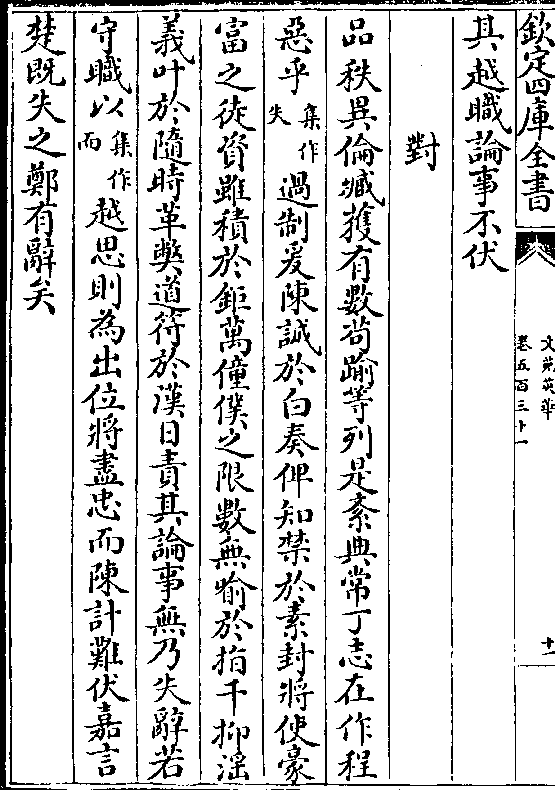 欽定四庫全書
文苑英華
卷五百三十一
十一
其越職論事不伏
對
品秩異倫臧獲有數苟踰等列是紊典常丁志在作程
惡乎集作失過制爰陳誠於白奏俾知禁於素封將使豪
富之徒資雖積於鉅萬僮僕之限數無踰於指千抑淫
義叶於隨時革弊道符於漢日責其論事無乃失辭若
守職以集作而越思則為出位將盡忠而陳計難伏嘉言
楚既失之鄭有辭矣